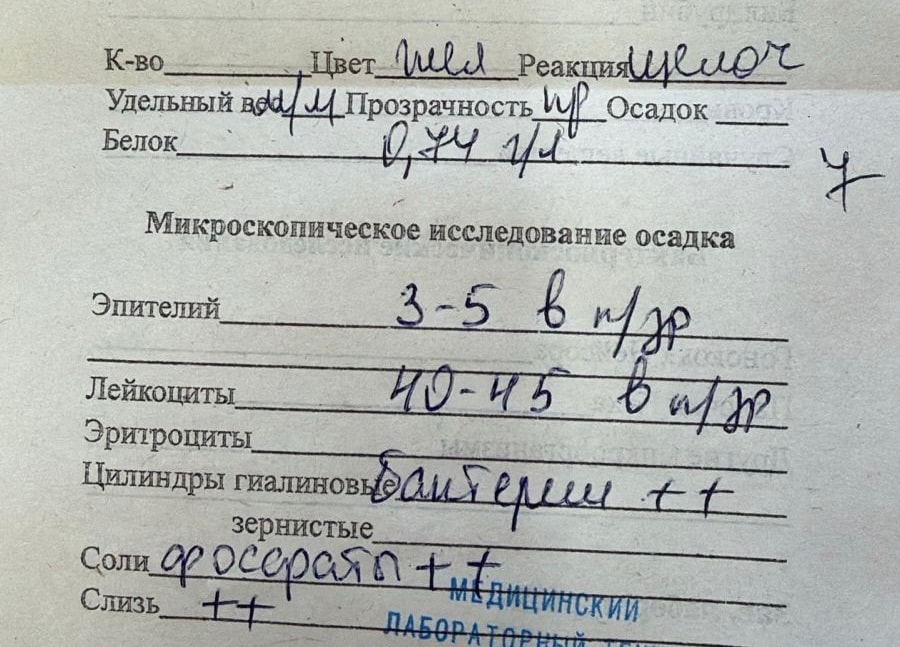 К-во Цвет жел Реакция щелоч
Удельный вес м/м Прозрачность пр Осадок
Белок 0,74 г/л
Микроскопическое исследование осадка
Эпителий 3-5 в п/зр
Лейкоциты 40-45 в п/зр
Эритроциты
Цилиндры гиалиновые бактерии ++
зернистые
Соли фосфаты ++
Слизь ++
МЕДИЦИНСКИЙ
ЛАБОРАТОРНЫЙ